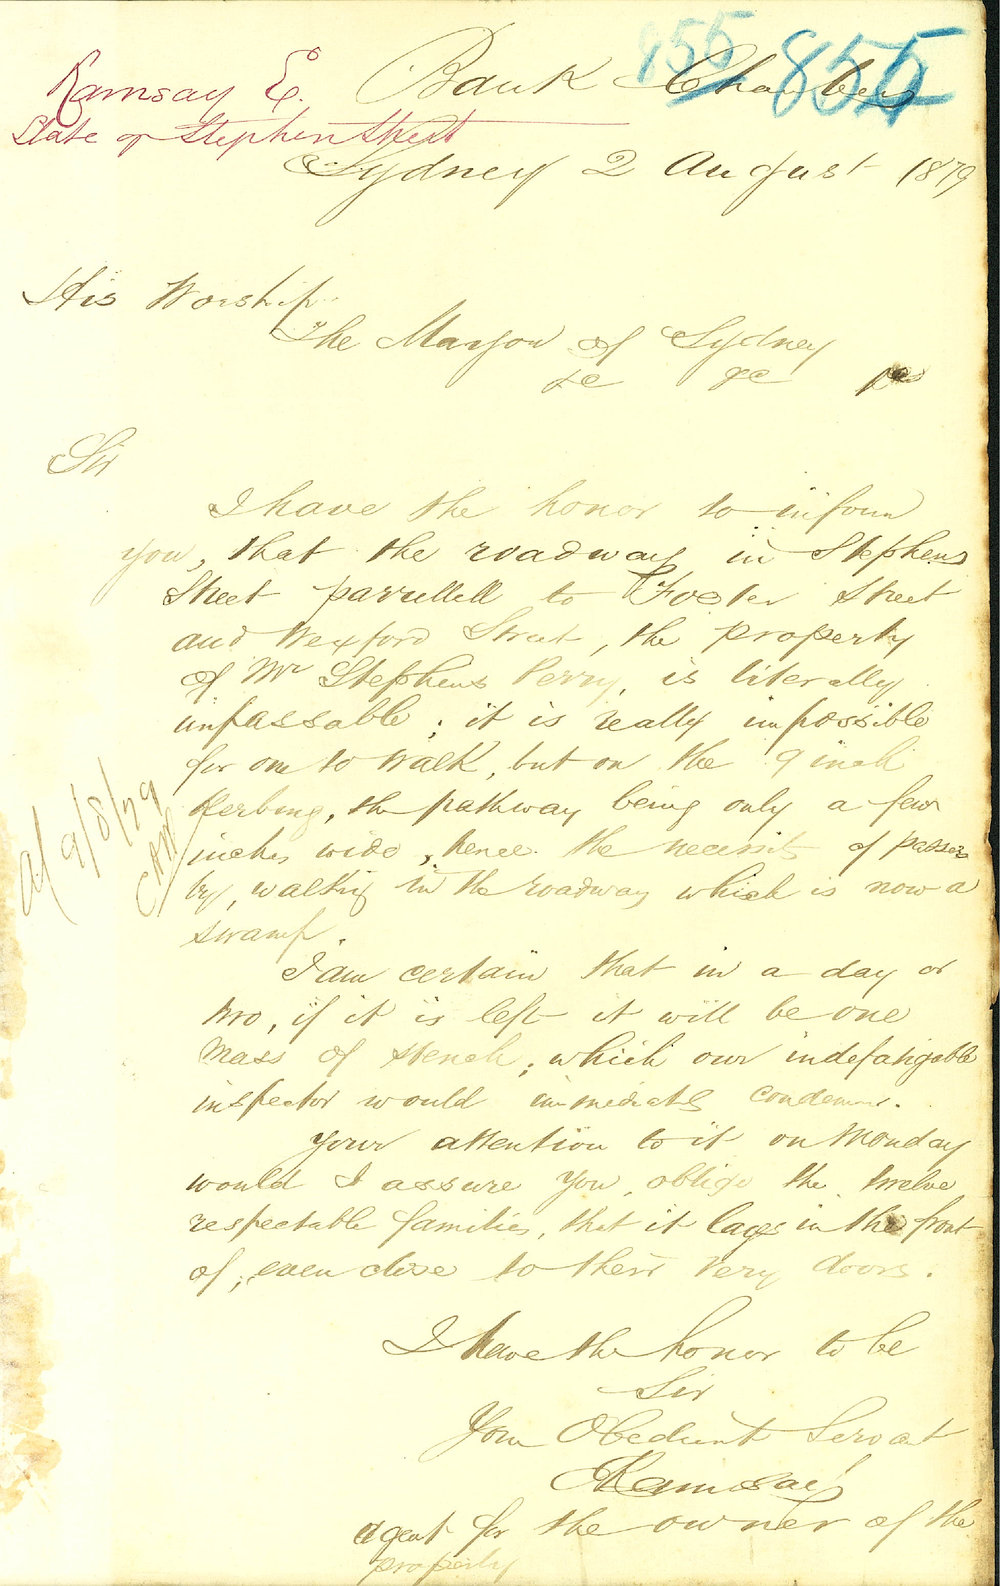 855 855
Ramsay E.
State of Stephen Street
Bank Chambers
Sydney 2 August 1879
His Worship
The Mayor of Sydney
&c &c &c
Sir
I have the honor to inform
you, that the roadway in Stephens
Street parrellell to Foster Street
and Wexford Street, the property
of Mr Stephens Perry, is literally
unpassable; it is really impossible
for one to walk, but on the 9 inch
Kerbing, the pathway being only a few
inches wide, hence the necessity of passers
by, walking in the roadway which is now a
swamp.
I am certain that in a day or
two, if it is left it will be one
mass of stench; which our indefatigable
inspector would immediately condemn.
Your attention to it on Monday
would I assure you, oblige the twelve
respectable families, that it lays in the front
of, even close to their very doors.
I have the honor to be
Sir
Your Obedient Servant
ERamsay
agent for the owner of the
property
9/8/79